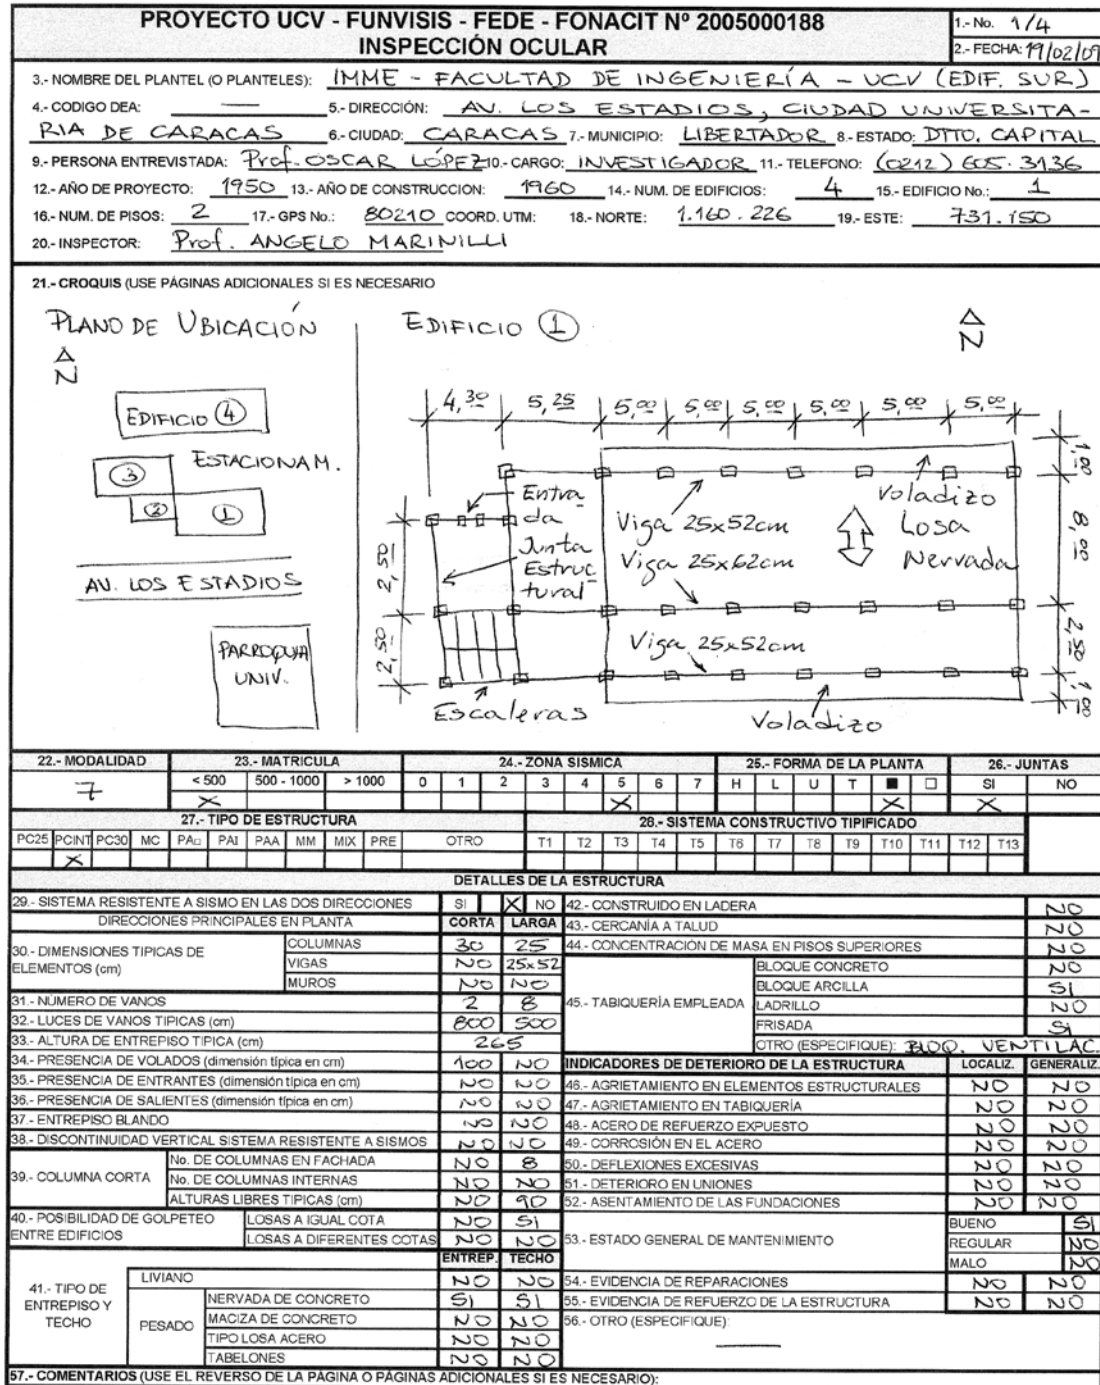 PROYECTO UCV - FUNVISIS - FEDE - FONACIT Nº 2005000188
INSPECCIÓN OCULAR
1.- No. 1/4
2.- FECHA: 19/02/09
3.- NOMBRE DEL PLANTEL (O PLANTELES): IMME - FACULTAD DE INGENIERÍA - UCV (EDIF. SUR)
4.- CODIGO DEA: — 5.- DIRECCIÓN: AV. LOS ESTADIOS, CIUDAD UNIVERSITA-
RIA DE CARACAS 6.- CIUDAD: CARACAS 7.- MUNICIPIO: LIBERTADOR 8.- ESTADO: DTTO. CAPITAL
9.- PERSONA ENTREVISTADA: Prof. OSCAR LÓPEZ 10.- CARGO: INVESTIGADOR 11.- TELEFONO: (0212) 605.3136
12.- AÑO DE PROYECTO: 1950 13.- AÑO DE CONSTRUCCION: 1960 14.- NUM. DE EDIFICIOS: 4 15.- EDIFICIO No.: 1
16.- NUM. DE PISOS: 2 17.- GPS No.: 80210 COORD. UTM: 18.- NORTE: 1.160.226 19.- ESTE: 731.150
20.- INSPECTOR: Prof. ANGELO MARINILLI
21.- CROQUIS (USE PÁGINAS ADICIONALES SI ES NECESARIO
PLANO DE UBICACIÓN
N
EDIFICIO 4
ESTACIONAM.
3
2
1
AV. LOS ESTADIOS
PARROQUIA
UNIV.
EDIFICIO 1
N
4,30 5,25 5,00 5,00 5,00 5,00 5,00 5,00
1,00
8,00
2,50
1,00
2,50
2,50
Entra
da
Junta
Estruc
tural
Viga 25x52cm
Viga 25x62cm
Voladizo
Losa
Nervada
Viga 25x52cm
Escaleras
Voladizo
22.- MODALIDAD 23.- MATRICULA 24.- ZONA SISMICA 25.- FORMA DE LA PLANTA 26.- JUNTAS
7 < 500 500 - 1000 > 1000 0 1 2 3 4 5 6 7 H L U T ■ □ SI NO
X X X X
27.- TIPO DE ESTRUCTURA 28.- SISTEMA CONSTRUCTIVO TIPIFICADO
PC25 PCINT PC30 MC PA□ PAI PAA MM MIX PRE OTRO T1 T2 T3 T4 T5 T6 T7 T8 T9 T10 T11 T12 T13
X
DETALLES DE LA ESTRUCTURA
29.- SISTEMA RESISTENTE A SISMO EN LAS DOS DIRECCIONES SI X NO
DIRECCIONES PRINCIPALES EN PLANTA CORTA LARGA
30.- DIMENSIONES TIPICAS DE ELEMENTOS (cm)
COLUMNAS 30 25
VIGAS NO 25x52
MUROS NO NO
31.- NÚMERO DE VANOS 2 8
32.- LUCES DE VANOS TIPICAS (cm) 800 500
33.- ALTURA DE ENTREPISO TIPICA (cm) 265
34.- PRESENCIA DE VOLADOS (dimensión típica en cm) 100 NO
35.- PRESENCIA DE ENTRANTES (dimensión típica en cm) NO NO
36.- PRESENCIA DE SALIENTES (dimensión típica en cm) NO NO
37.- ENTREPISO BLANDO NO NO
38.- DISCONTINUIDAD VERTICAL SISTEMA RESISTENTE A SISMOS NO NO
39.- COLUMNA CORTA
No. DE COLUMNAS EN FACHADA NO 8
No. DE COLUMNAS INTERNAS NO NO
ALTURAS LIBRES TIPICAS (cm) NO 90
40.- POSIBILIDAD DE GOLPETEO ENTRE EDIFICIOS
LOSAS A IGUAL COTA NO SI
LOSAS A DIFERENTES COTAS NO NO
ENTREP. TECHO
41.- TIPO DE ENTREPISO Y TECHO
LIVIANO NO NO
PESADO
NERVADA DE CONCRETO SI SI
MACIZA DE CONCRETO NO NO
TIPO LOSA ACERO NO NO
TABELONES NO NO
42.- CONSTRUIDO EN LADERA NO
43.- CERCANÍA A TALUD NO
44.- CONCENTRACIÓN DE MASA EN PISOS SUPERIORES NO
45.- TABIQUERÍA EMPLEADA
BLOQUE CONCRETO NO
BLOQUE ARCILLA SI
LADRILLO NO
FRISADA SI
OTRO (ESPECIFIQUE): BLOQ. VENTILAC.
INDICADORES DE DETERIORO DE LA ESTRUCTURA LOCALIZ. GENERALIZ.
46.- AGRIETAMIENTO EN ELEMENTOS ESTRUCTURALES NO NO
47.- AGRIETAMIENTO EN TABIQUERÍA NO NO
48.- ACERO DE REFUERZO EXPUESTO NO NO
49.- CORROSIÓN EN EL ACERO NO NO
50.- DEFLEXIONES EXCESIVAS NO NO
51.- DETERIORO EN UNIONES NO NO
52.- ASENTAMIENTO DE LAS FUNDACIONES NO NO
53.- ESTADO GENERAL DE MANTENIMIENTO
BUENO SI
REGULAR NO
MALO NO
54.- EVIDENCIA DE REPARACIONES NO NO
55.- EVIDENCIA DE REFUERZO DE LA ESTRUCTURA NO NO
56.- OTRO (ESPECIFIQUE): —
57.- COMENTARIOS (USE EL REVERSO DE LA PÁGINA O PÁGINAS ADICIONALES SI ES NECESARIO):